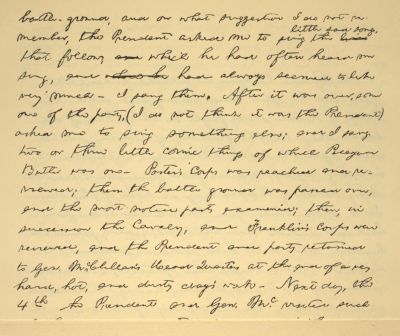 battle-ground, and on what suggestion I do not re
member, the President asked me to sing the little sad song,
that follows which he had often heard me
sing, and had always seemed to like
very much. I sang them. After it was over, some
one of the party, (I do not think it was the President)
asked me to sing something else; and I sang
two or three little comic things of which Picayune
Butler was one. Porter's Corps was reached and re-
viewed; then the battle ground was passed over,
and the most noted parts examined; then, in
succession the Cavalry, and Franklin's Corps were
reviewed, and the President and party returned
to Gen. McClellan's Head Quarters at the end of a very
hard, hot, and dusty day's work. Next day, the
4th the President and Gen. Mc. visited such